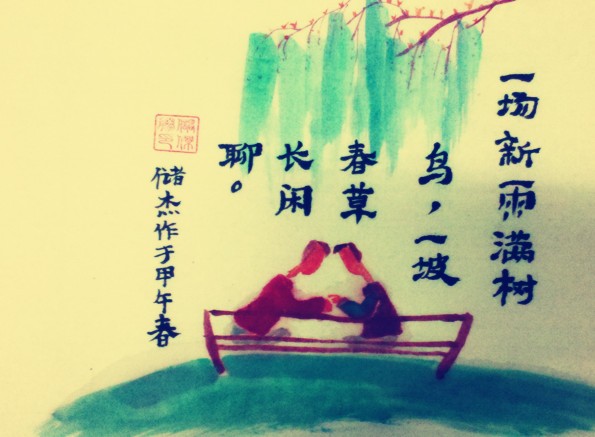 一场新雨满树
鸟，一坡
春草
长闲
聊。
储杰作于甲午春